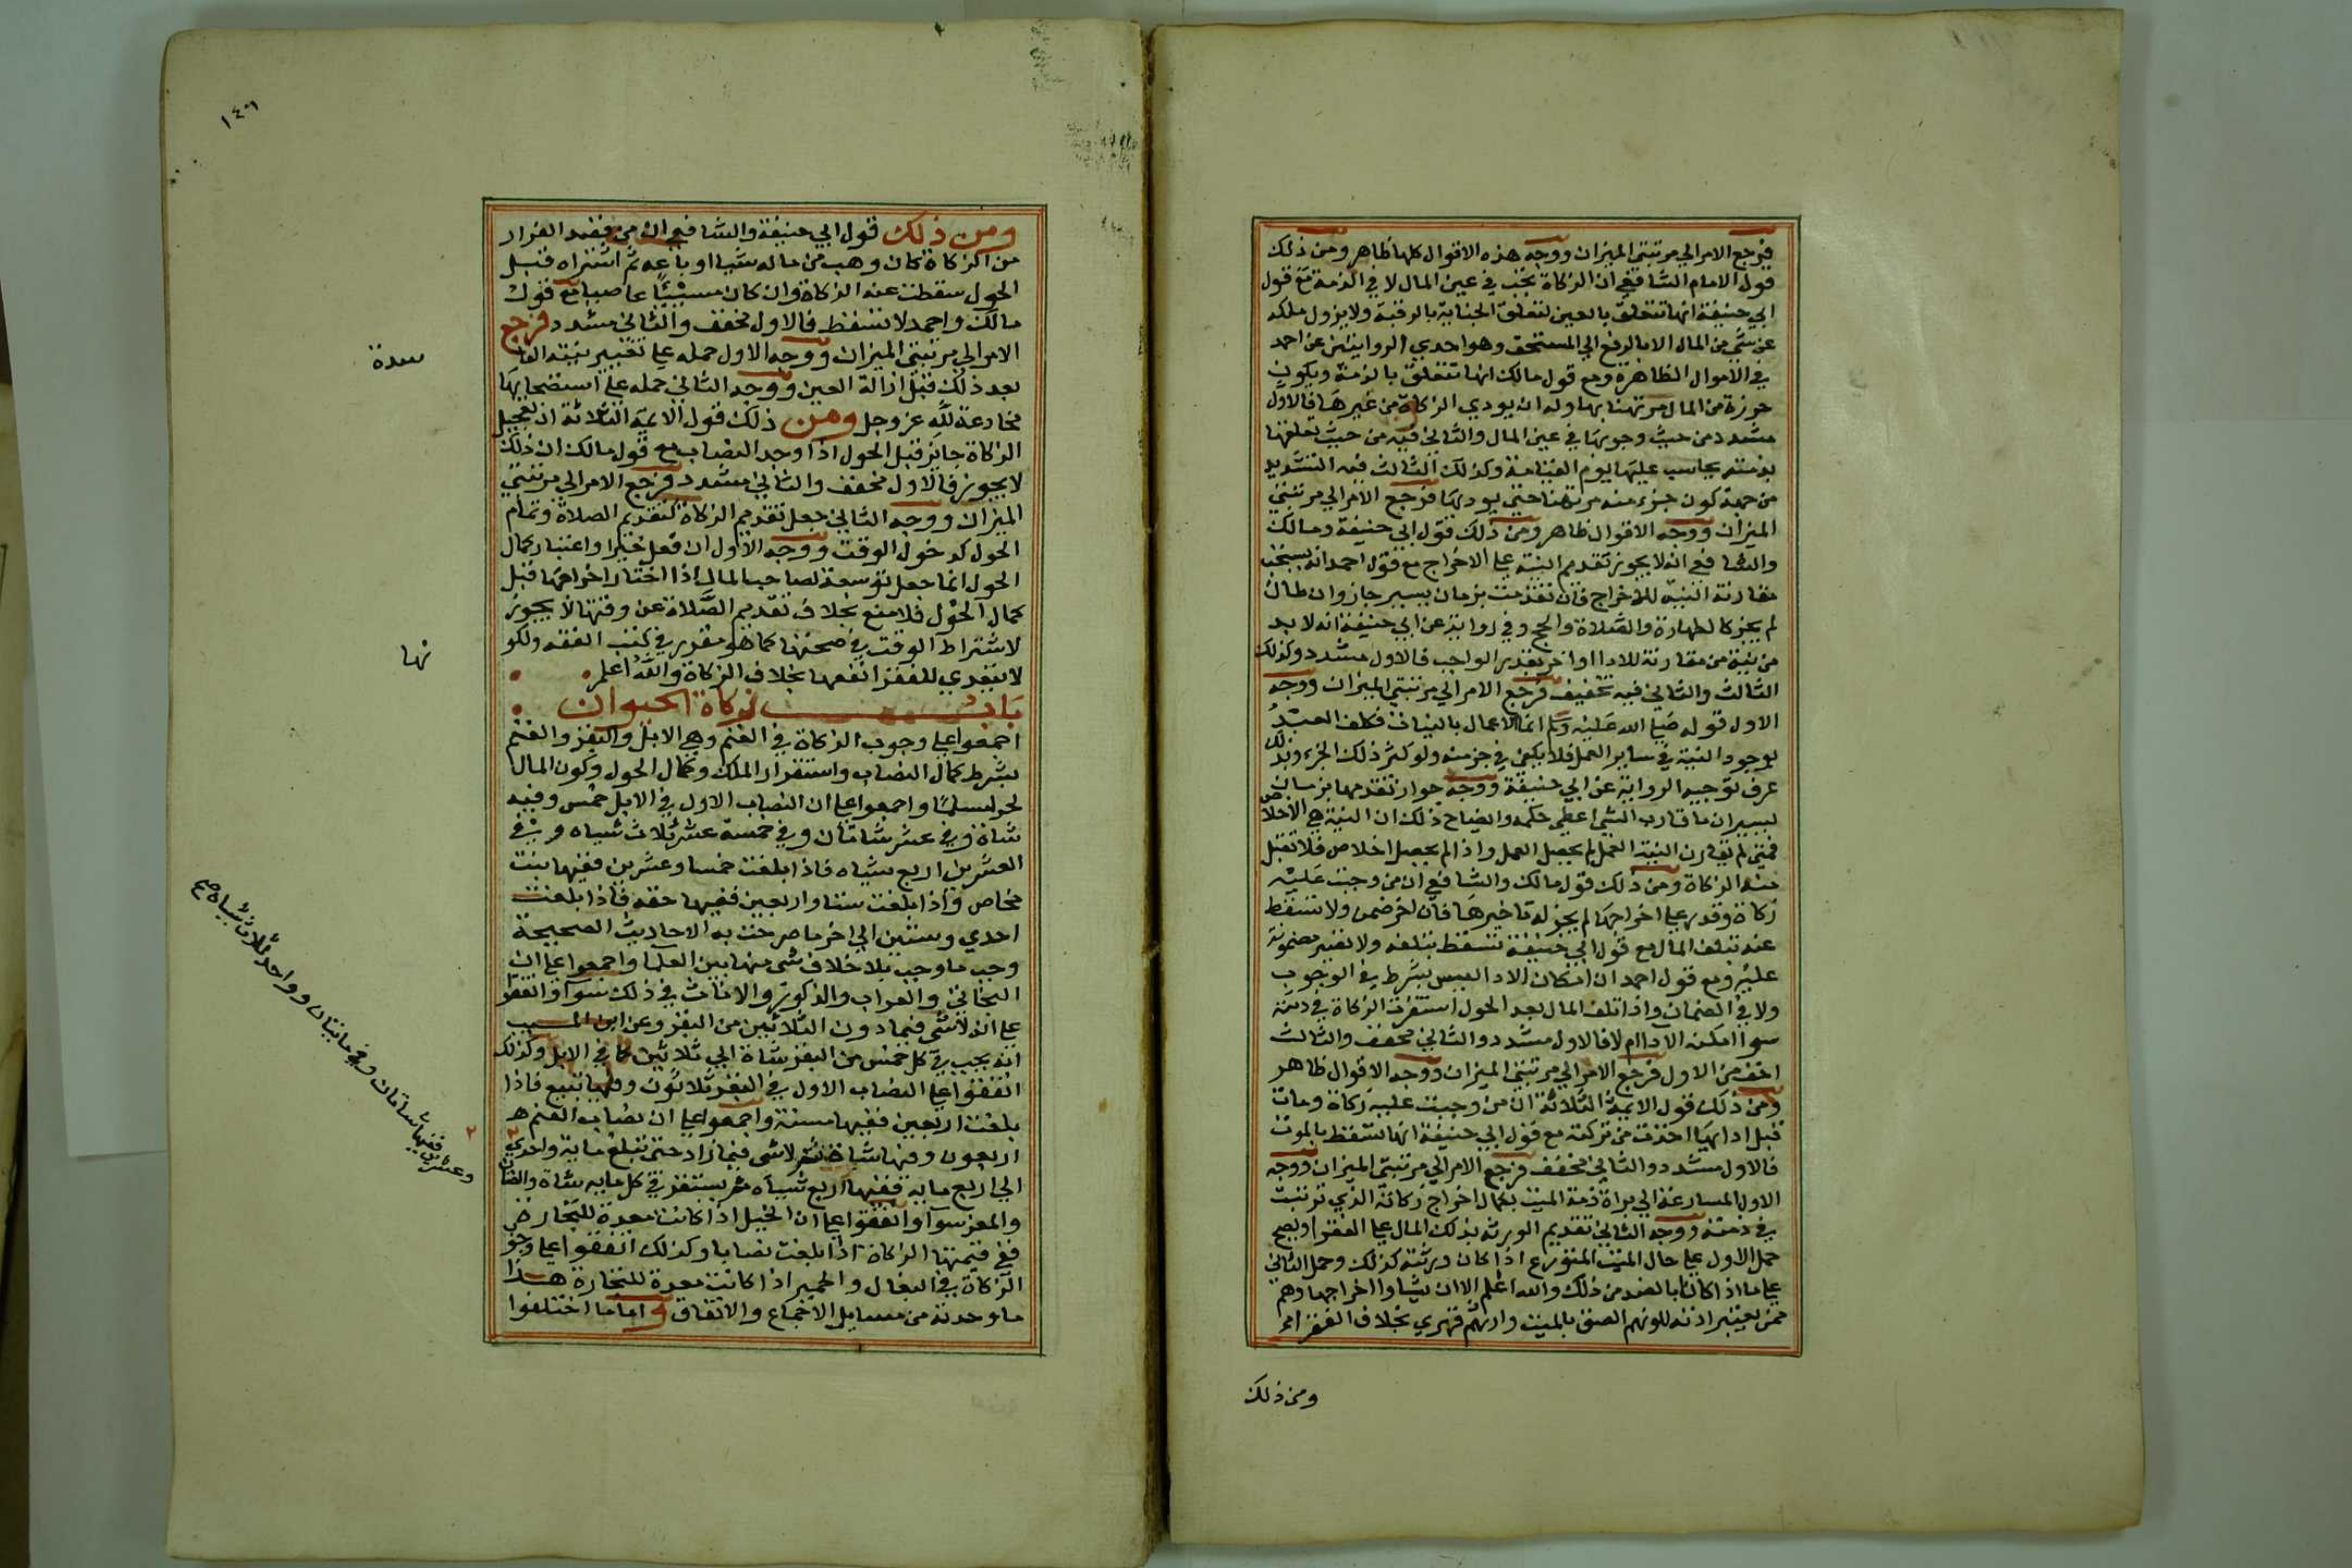 فرجع الامر الي مرتبتي الميزان ووجه هذه الاقوال كلها ظاهر ومن ذلك
قول الامام الشافعي ان الزكاة تجب في عين المال لا في الذمة مع قول
ابي حنيفة انها تتعلق بالعين لتعلق الجناية بالرقبة ولا يزول ملكه
عن شي من المال الا بالدفع الي المستحق وهو احدي الروايتين عن احمد
في الاموال الظاهرة ومع قول مالك انها تتعلق بالذمة ويكون
جزء من المال مرتهنا بها وله ان يودي الزكاة من غيرها فالاول
مشدد من حيث وجوبها في عين المال والثاني فيه من حيث تعلقها
بذمته يحاسب عليها يوم القيامة وكذلك الثالث فيه التشديد
من جهة كون جزء منه مرتهنا حتي يوديها فرجع الامر الي مرتبتي
الميزان ووجه الاقوال ظاهر ومن ذلك قول ابي حنيفة ومالك
والشافعي انه لا يجوز تقديم النية علي الاخراج مع قول احمد انه يستحب
مقارنة النية للاخراج فان تقدمت بزمان يسير جاز وان طال
لم يجز كالطهارة والصلاة والحج وفي رواية عن ابي حنيفة انه لا بد
من نية من مقارنة للادا او اخر بقدر الواجب فالاول مشدد وكذلك
الثالث والثاني فيه تخفيف فرجع الامر الي مرتبتي الميزان ووجه
الاول قوله صلي الله عليه وسلم انما الاعمال بالنيات فكلف العبد
بوجود النية في ساير العمل فلا يكفي في جزء منه ولو كثر ذلك الجزء وبذلك
عرف توجيه الرواية عن ابي حنيفة ووجه جواز تقدمها بزمان
يسير ان ما قارب الشي اعطي حكمه وايضاح ذلك ان النية هي الاخلاص
فمتي لم تقارن النية العمل لم يحصل العمل واذا لم يحصل اخلاص فلا تقبل
منه الزكاة ومن ذلك قول مالك والشافعي ان من وجبت عليه
زكاة وقدر علي اخراجها لم يجز له تاخيرها فان اخر ضمن ولا تسقط
عنه بتلف المال مع قول ابي حنيفة تسقط بتلفه ولا تصير مضمونة
عليه ومع قول احمد ان امكان الادا ليس بشرط في الوجوب
ولا في الضمان واذا تلف المال بعد الحول استقرت الزكاة في ذمته
سوا امكنه الادا ام لا فالاول مشدد والثاني مخفف والثالث
اخف من الاول فرجع الامر الي مرتبتي الميزان ووجه الاقوال ظاهر
ومن ذلك قول الايمة الثلاثة ان من وجبت عليه زكاة ومات
قبل ادايها اخذت من تركته مع قول ابي حنيفة انها تسقط بالموت
فالاول مشدد والثاني مخفف فرجع الامر الي مرتبتي الميزان ووجه
الاول المسارعة الي براة ذمة الميت بكمال اخراج زكاته الذي ترتبت
في ذمته ووجه الثاني تقديم الورثة بذلك المال علي الفقرا ويصح
حمل الاول علي حال الميت المتورع اذا كان ورثته كذلك وحمل الثاني
علي ما اذا كان بالضد من ذلك والله اعلم الا ان يشاوا اخراجها وهم
ممن يعتبر اذنه للونهم الصق بالميت وارثهم قهري بخلاف الفقرا
ومن ذلك
١٤٩
ومن ذلك قول ابي حنيفة والشافعي ان من قصد الفرار
من الزكاة كان وهب من ماله شيا او باعه ثم اشتراه قبل
الحول سقطت عنه الزكاة وان كان مسيئا عاصيا مع قول
مالك واحمد لا تسقط فالاول مخفف والثاني مشدد فرجع
الامر الي مرتبتي الميزان ووجه الاول حمله علي تغيير نيته الفا
سدة
بعد ذلك قبل ازالة العين ووجه الثاني حمله علي استصحابها
مخادعة لله عز وجل ومن ذلك قول الايمة الثلاثة ان تعجيل
الزكاة جايز قبل الحول اذا وجد النصاب مع قول مالك ان ذلك
لا يجوز فالاول مخفف والثاني مشدد فرجع الامر الي مرتبتي
الميزان ووجه الثاني جعل تقديم الزكاة كتقديم الصلاة وتمام
الحول كدخول الوقت ووجه الاول ان فعل خيرا واعتبار كمال
الحول انما جعل توسعة لصاحب المال اذا اختار اخراجها قبل
كمال الحول فلا منع بخلاف تقديم الصلاة عن وقتها لا يجوز
لاشتراط الوقت في صحتها كما هو مقدر في كتب الفقه ولكو
نها
لا يتعدي للفقرا نفعها بخلاف الزكاة والله اعلم
باب زكاة الحيوان
اجمعوا علي وجوب الزكاة في الغنم وهي الابل والبقر والغنم
بشرط كمال النصاب واستقرار الملك وكمال الحول وكون المال
لحر مسلما واجمعوا علي ان النصاب الاول في الابل خمس وفيه
شاة وفي عشر شاتان وفي خمسة عشر ثلاث شياه وفي
العشرين اربع شياه فاذا بلغت خمسا وعشرين ففيها بنت
مخاض واذا بلغت ستا واربعين ففيها حقة فاذا بلغت
احدي وستين الي اخر ما صرحت به الاحاديث الصحيحة
وجب ما وجب بلا خلاف شي منها بين العلما واجمعوا علي ان
البخاتي والعراب والذكور والاناث في ذلك سوا واتفقوا
علي ان لا شي فيما دون الثلاثين من البقر وعن ابن المسيب
انه يجب في كل خمس من البقر شاة الي ثلاثين كما في الابل وكذلك
اتفقوا علي النصاب الاول في البقر ثلاثون وفيها تبيع فاذا
بلغت اربعين ففيها مسنة واجمعوا علي ان نصاب الغنم
اربعون وفيها شاة ثم لا شي فيما زاد حتي تبلغ ماية واحدي
وعشرين ففيها شاتان وفي ماتيان وواحد ثلاث شياه صح
الي اربع ماية ففيها اربع شياه ثم يستقر في كل ماية شاة والضان
والمعز سوا واتفقوا علي ان الخيل اذا كانت معدة للتجارة
ففي قيمتها الزكاة اذا بلغت نصابا وكذلك اتفقوا علي وجو
الزكاة في البغال والحمير اذا كانت معدة للتجارة هذا
ما وجدته من مسايل الاجماع والاتفاق واما ما اختلفوا